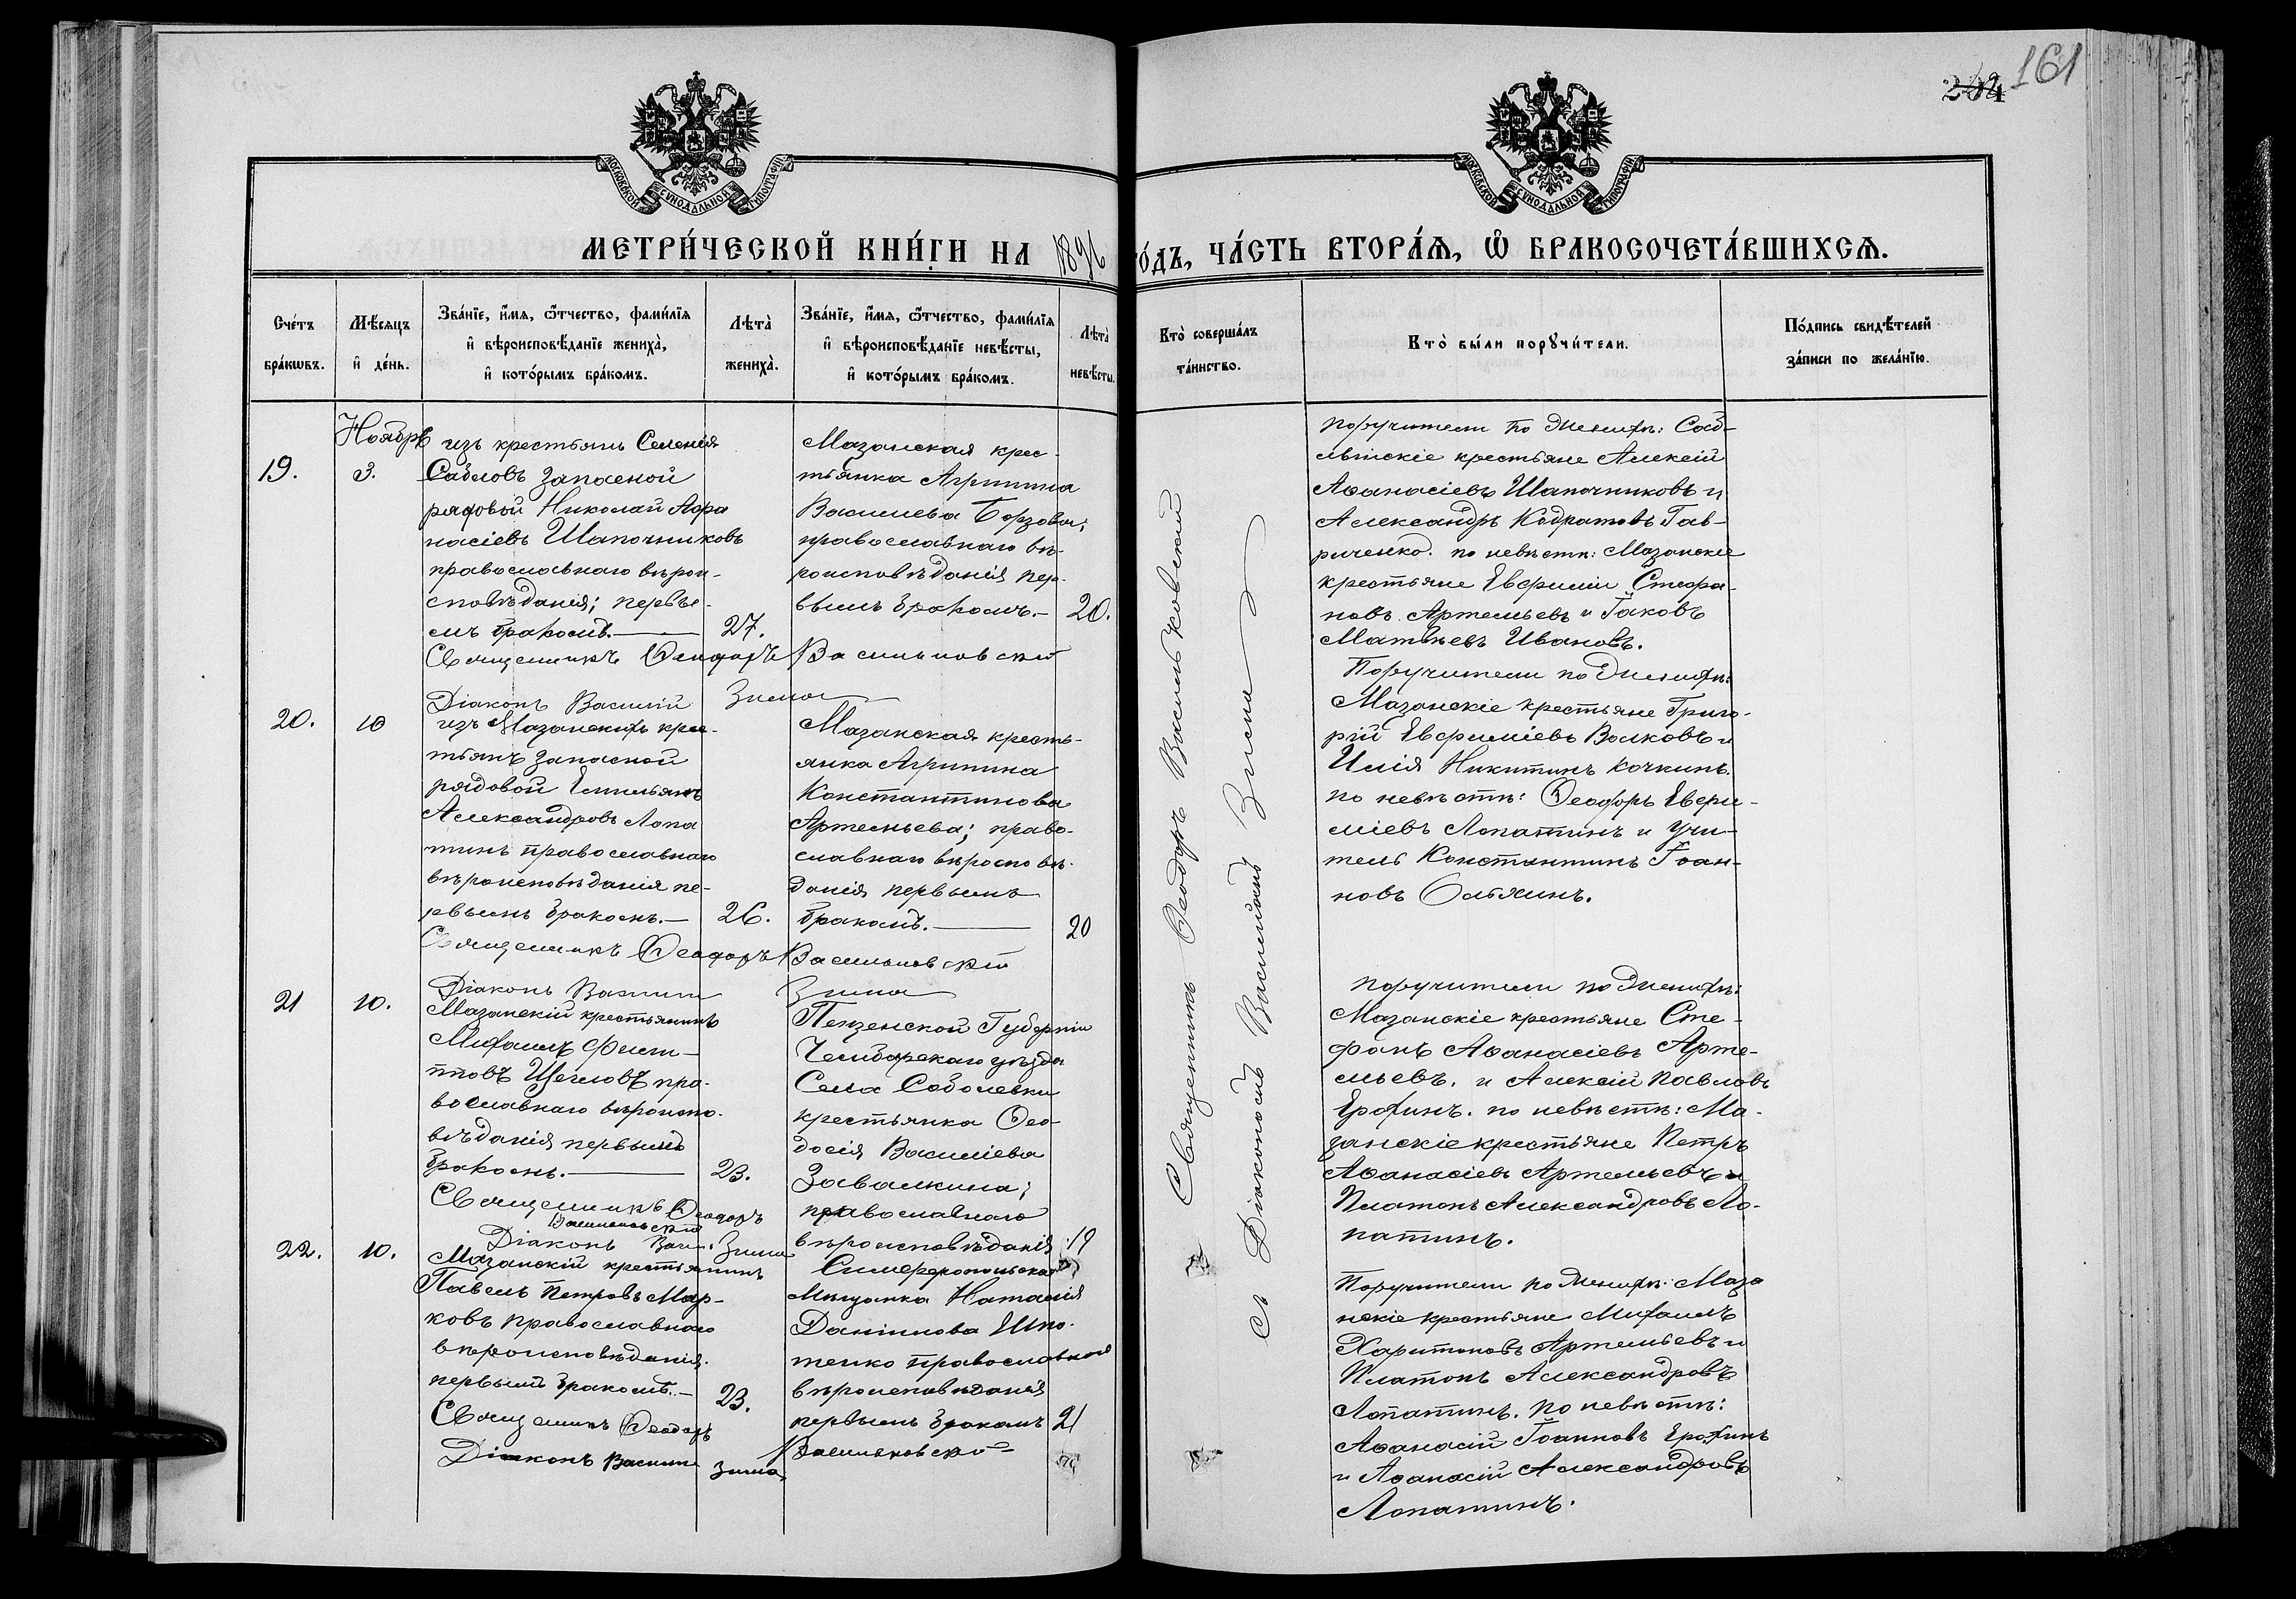 161
МОСКОВСКОЙ СУНОДАЛЬНОЙ ТИПОГРАФІИ
МОСКОВСКОЙ СУНОДАЛЬНОЙ ТИПОГРАФІИ
МЕТРИ́ЧЕСКОЙ КНИ́ГИ НА 1896 ГО́ДЪ, ЧА́СТЬ ВТОРА́Ѧ, Ѡ҆ БРАКОСОЧЕТА́ВШИХСѦ.
Сче́тъ бра́кѡвъ.
Мѣ́сѧцъ и҆ де́нь.
Зва́нїе, и҆́мѧ, ѻ҆́тчество, фами́лїѧ
и҆ вѣроисповѣ́данїе жениха̀,
и҆ кото́рымъ бра́комъ.
Лѣта̀ жениха̀.
Зва́нїе, и҆́мѧ, ѻ҆́тчество, фами́лїѧ
и҆ вѣроисповѣ́данїе невѣ́сты,
и҆ кото́рымъ бра́комъ.
Лѣта̀ невѣ́сты.
Кто̀ соверша́лъ та́инство.
Кто̀ бы́ли порꙋчи́тели.
По́дпись свидѣ́телей за́писи по жела́нїю.
19.
Ноябрь
3.
изъ крестьянъ Селенія
Сабловъ запасной
рядовой Николай Афа
насіевъ Шапочниковъ
православнаго вѣрои-
сповѣданія; первы-
мъ бракомъ.—
27.
Мазанская крес-
тьянка Агрипина
Васильева Борзова;
православнаго вѣ-
роисповѣданія пер-
вымъ бракомъ.—
20.
Священникъ Ѳеодоръ Васильковскій
Діаконъ Василій Зима
Поручители по женихѣ: Саб-
лынскіе крестьяне Алексѣй
Аѳанасіевъ Шапочниковъ и
Александръ Кодратовъ Гав-
риченко. по невѣстѣ: Мазанскіе
крестьяне Евфимій Стефа-
новъ Артемьевъ и Іаковъ
Матвѣевъ Ивановъ.
20.
10
изъ Мазанскихъ крес-
тьянъ запасной
рядовой Емельянъ
Александровъ Лопа
тинъ православнаго
вѣроисповѣданія пе-
рвымъ бракомъ.—
26.
Мазанская кресть-
янка Агрипина
Константинова
Артемьева; право-
славнаго вѣроисповѣ-
данія первымъ
бракомъ.—
20
Священникъ Ѳеодоръ Васильковскій
Діаконъ Василій Зима
Поручители по женихѣ:
Мазанскіе крестьяне Григо-
рій Евфиміевъ Волковъ и
Илія Никитинъ Кочкинъ.
по невѣстѣ: Ѳеодоръ Евфи-
міевъ Лопатинъ и Учи-
тель Константинъ Іоан-
новъ Ольхинъ.
21
10.
Мазанскій крестьянинъ
Михаилъ Фили-
пповъ Щегловъ пра-
вославнаго вѣроиспо-
вѣданія первымъ
бракомъ.—
23.
Пензенской Губерніи
Чембарскаго уѣзда
Села Соболевки
крестьянка Ѳео-
досія Василіева
Завалкина;
православнаго
вѣроисповѣданія
19
Священникъ Ѳеодоръ
Васильковскій
Діаконъ Вас. Зима
Поручители по женихѣ:
Мазанскіе крестьяне Сте-
фанъ Аѳанасіевъ Арте-
мьевъ. и Алексѣй Павловъ
Ерохинъ. по невѣстѣ: Ма-
занскіе крестьяне Петръ
Аѳанасіевъ Артемьевъ и
Платонъ Александровъ Ло-
патинъ.
22.
10.
Мазанскій крестьянинъ
Павелъ Петровъ Мар-
ковъ православнаго
вѣроисповѣданія.
первымъ бракомъ.—
23.
Симферопольская
Мѣщанка Наталія
Даніилова Шпо-
тенко православнаго
вѣроисповѣданія
первымъ бракомъ
21
Священникъ Ѳеодоръ Васильковскій
Діаконъ Василій Зима
Поручители по женихѣ: Маза
нскіе крестьяне Михаилъ
Харитоновъ Артемьевъ и
Платонъ Александровъ
Лопатинъ. по невѣстѣ:
Аѳанасій Іоанновъ Ерохинъ
и Аѳанасій Александровъ
Лопатинъ.
Священникъ Ѳеодоръ Васильковскій
съ Діакономъ Василіемъ Зимой